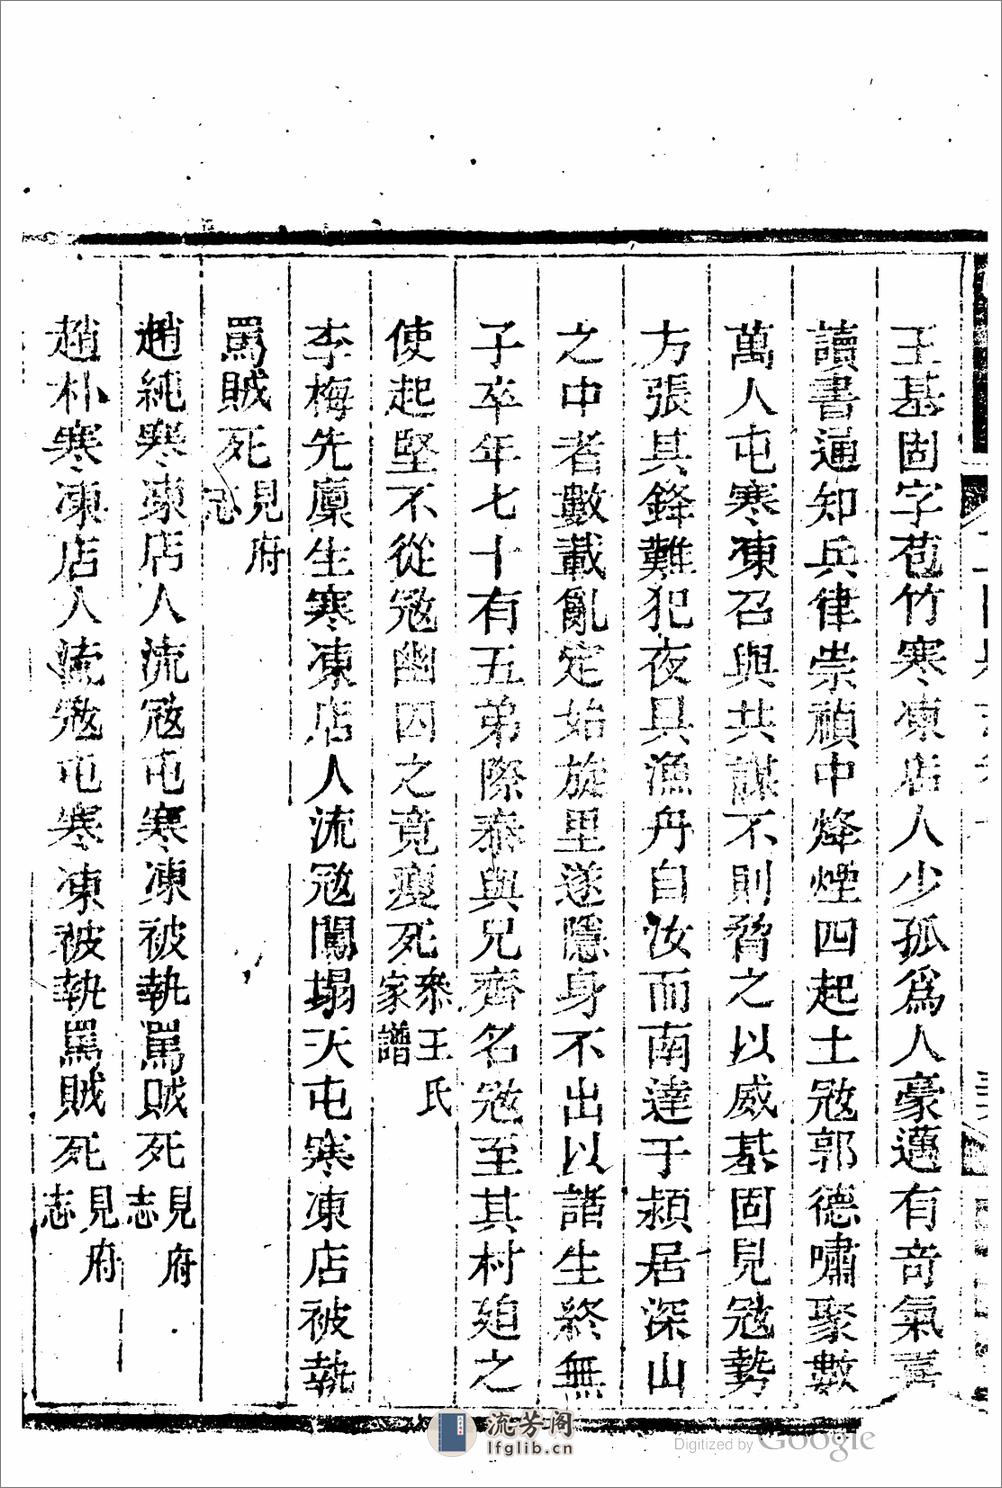 王基固字苞竹寒凍店人少孤爲人豪邁有奇氣喜
讀書通知兵律崇禎中烽煙四起土寇郭德嘯聚數
萬人屯寒凍召與共謀不則脅之以威基固見寇勢
方張其鋒難犯夜具漁舟自汝而南達于潁居深山
之中者數載亂定始旋里遂隱身不出以諧生終無
子卒年七十有五弟際泰與兄齊名寇至其村廹之
使起堅不從寇幽囚之竟瘦死
叅王氏
家譜
李梅先廩生寒凍店人流寇闖塌天屯寒凍店被執
罵賊死
見府
志
趙純寒凍店人流寇屯寒凍被執罵賊死
見府
志
趙朴寒凍店人流寇屯寒凍被執罵賊死
見府
志
流芳阁
lfglib.cn
Digitized by Google